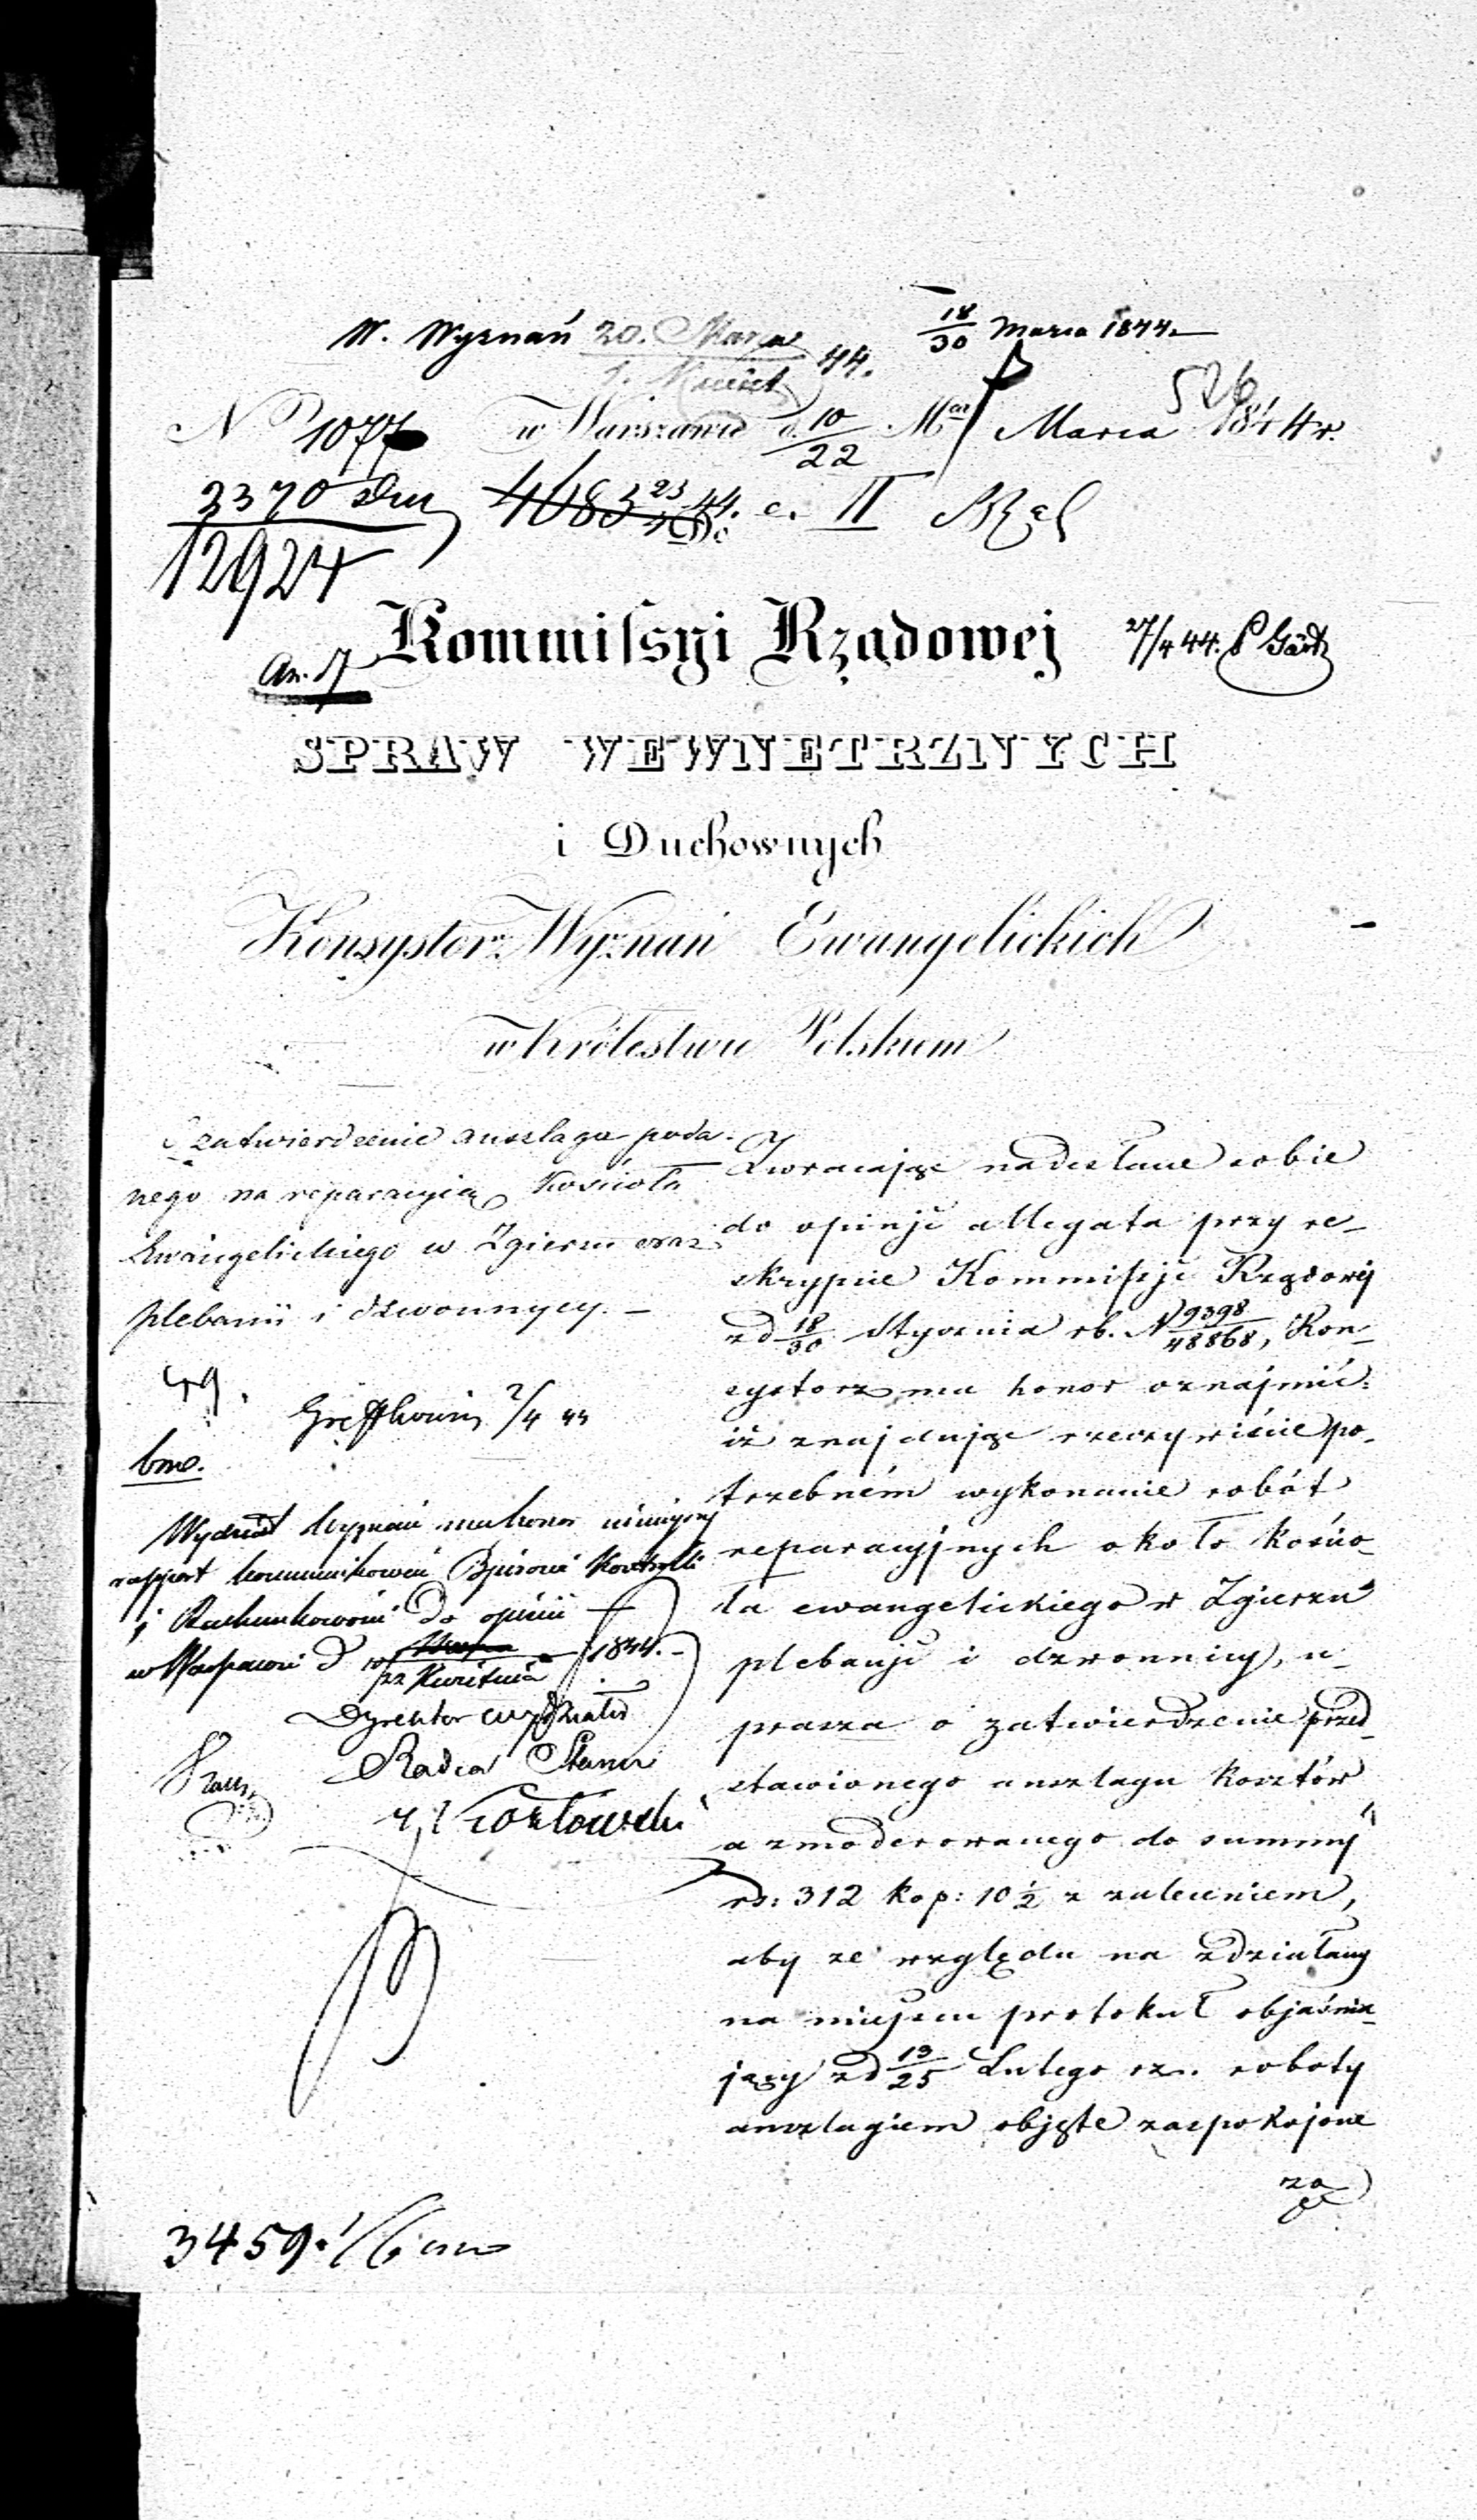 W. Wyznań 20. Marca 44.
18/30 Marca 1844.
526
No 1077 w Warszawie d. 10/22 Marca 1844 r.
2370
12924
4683 23 44. e. II
An. 17
Kommissyi Rządowej
27/4 44.
SPRAW WEWNETRZNYCH
i Duchownych
Konsystorz Wyznań Ewangelickich
w Królestwie Polskiem
O zatwierdzenie anszlagu poda-
nego na reparacyią Kościoła
Ewangelickiego w Zgierzu oraz
plebanii i dzwonnycy. —
49.
2/4 44
Wydział Wyznań ma honor niniejszy
rapport kommunikować Biurowi Kontrolli
i Rachunkowości do opinii —
w Warszawie d Marca / Kwietnia 1844. -
Dyrektor Wydziału
Radca Stanu
Kozłowski
Zwracając nadesłane sobie
do opinji allegata przy re-
skrypcie Kommissji Rządowej
z d 18/30 Stycznia rb. N 9398/48868, Kon-
systorz ma honor oznajmić:
iż znajdując rzeczywiście po-
trzebném wykonanie robót
reparacyjnych około kościo-
ła ewangelickiego w Zgierzu
plebanji i dzwonnicy, u-
prasza o zatwierdzenie przed-
stawionego anszlagu kosztów
a zmoderowanego do summy
rs: 312 kop: 10 1/2 z zaleceniem,
aby ze względu na zdziałany
na miejscu protokuł objaśnia-
jący z d 13/25 Lutego rz.. roboty
anszlagiem objęte zaspokojone
3459.